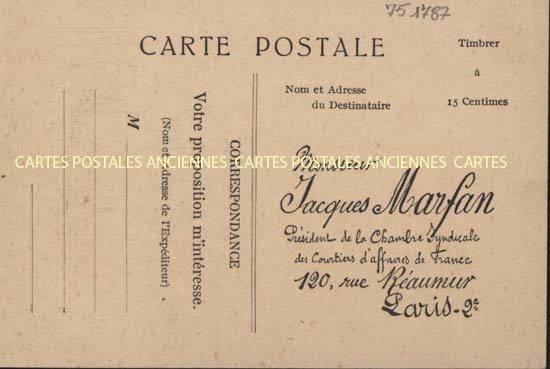 75 1787
CARTE POSTALE
Timbrer
à
15 Centimes
Nom et Adresse
du Destinataire
CORRESPONDANCE
Votre proposition m'intéresse.
(Nom et Adresse de l'Expéditeur)
M
CARTES POSTALES ANCIENNES CARTES POSTALES ANCIENNES CARTES
Monsieur
Jacques Marfan
Président de la Chambre Syndicale
des Courtiers d'affaires de France
120, rue Réaumur
Paris-2e